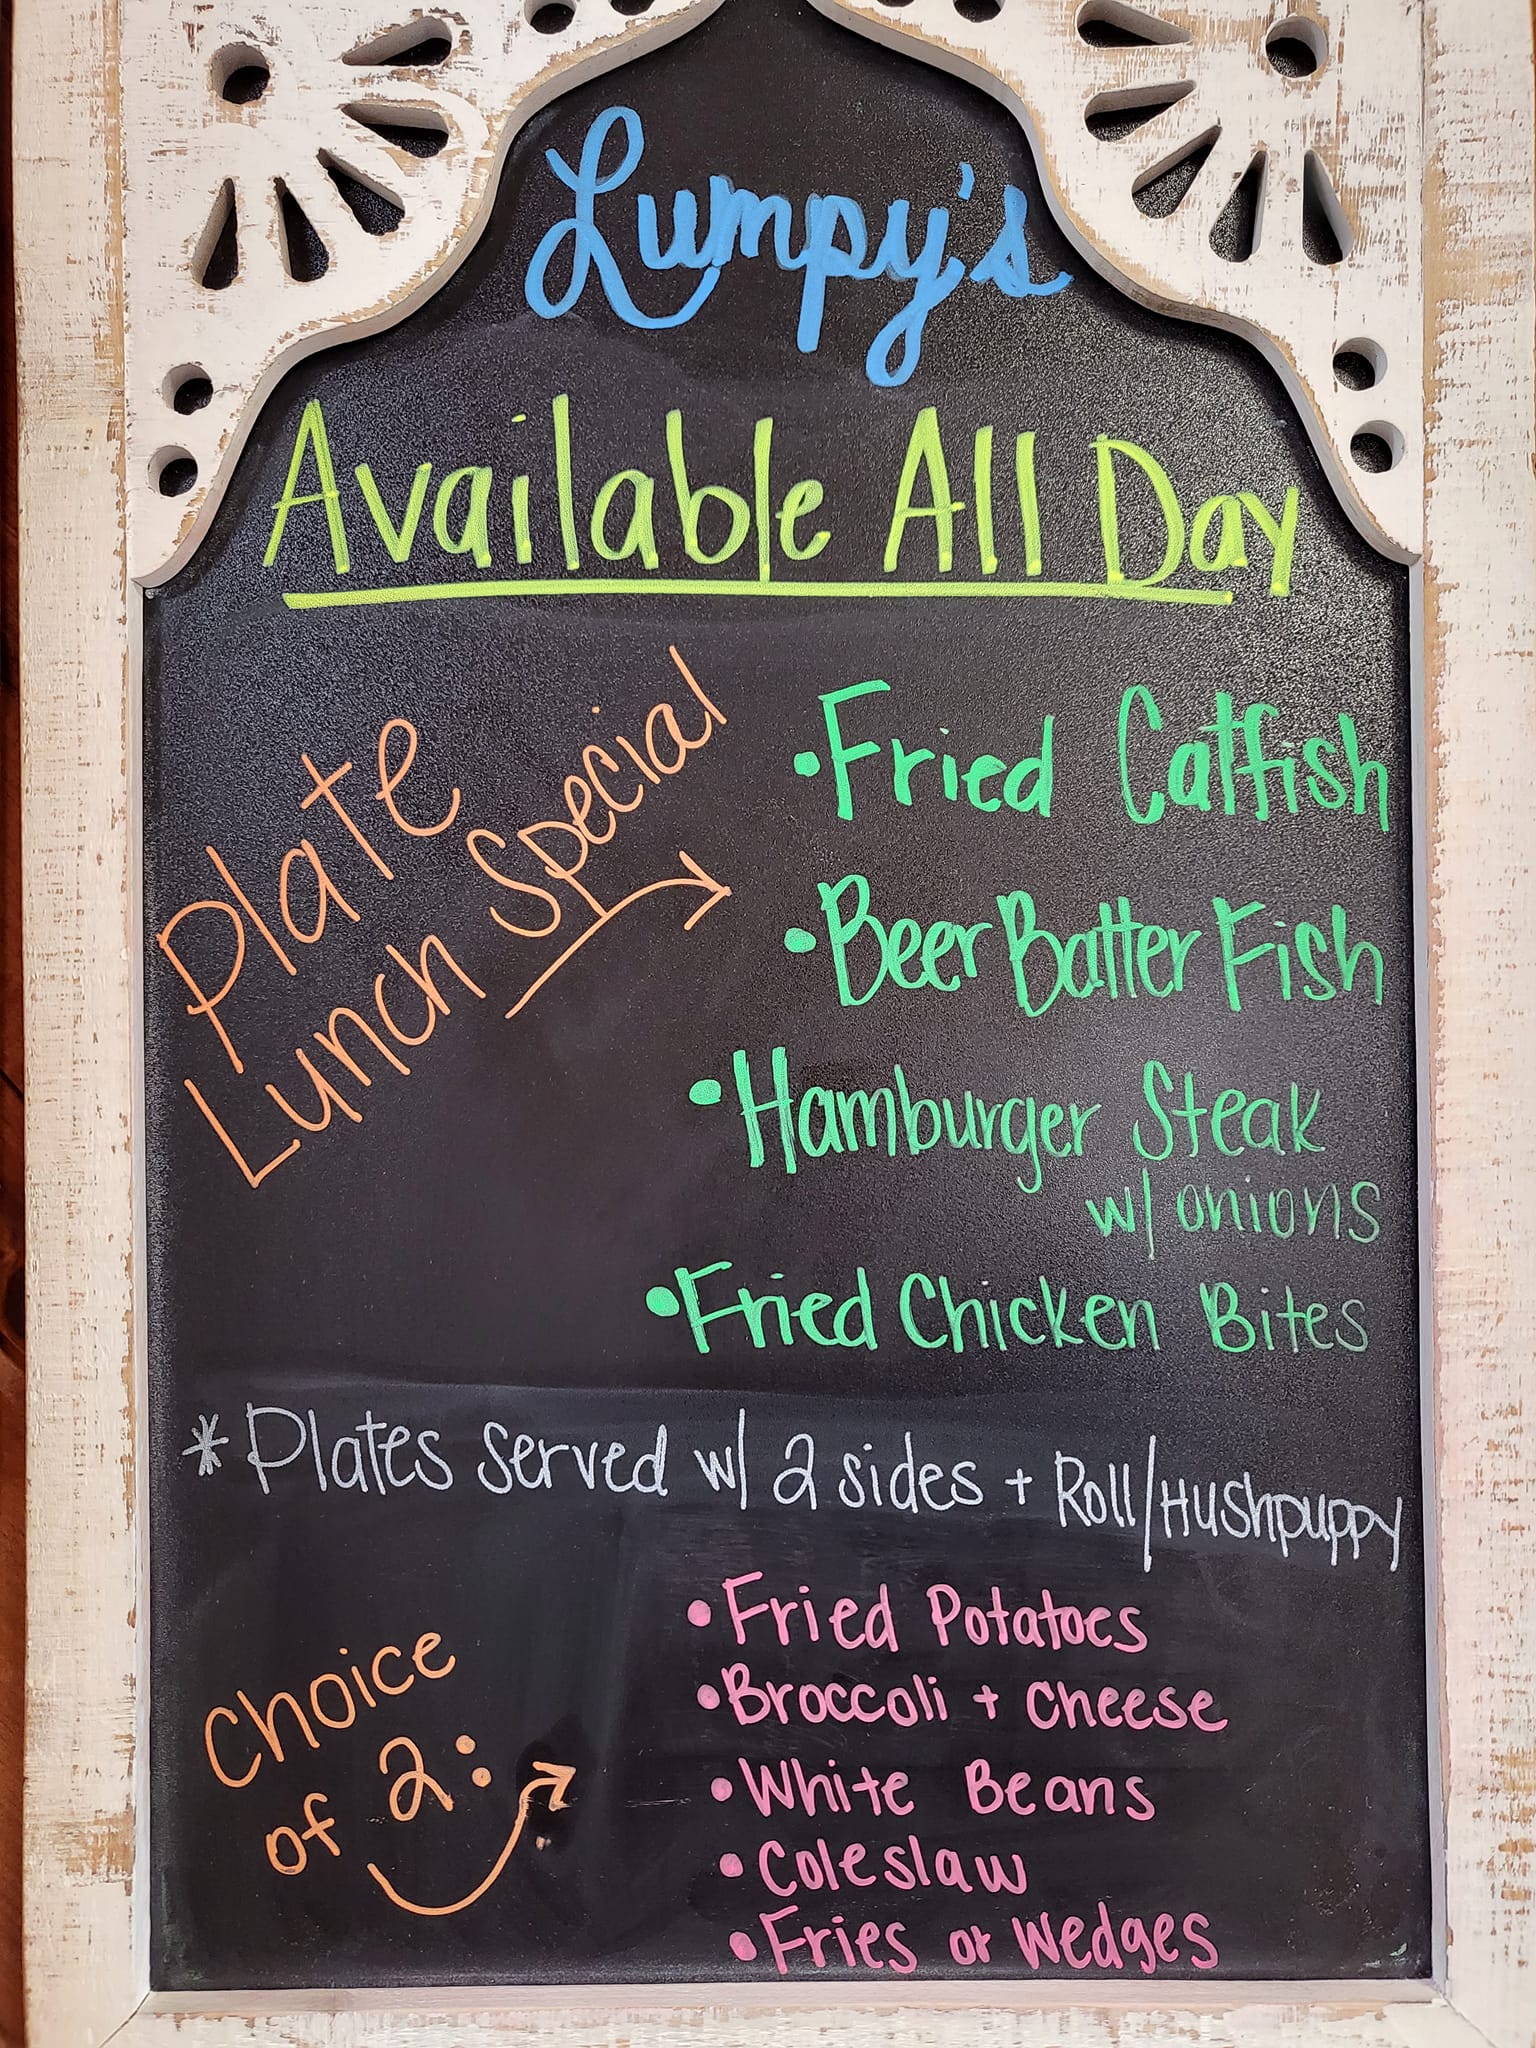 Lumpy's
Available All Day
Plate
Lunch Special
• Fried Catfish
• Beer Batter Fish
• Hamburger Steak
w/ onions
• Fried Chicken Bites
* Plates served w/ 2 sides + Roll/Hushpuppy
Choice
of 2:
• Fried Potatoes
• Broccoli + Cheese
• White Beans
• Coleslaw
• Fries or Wedges